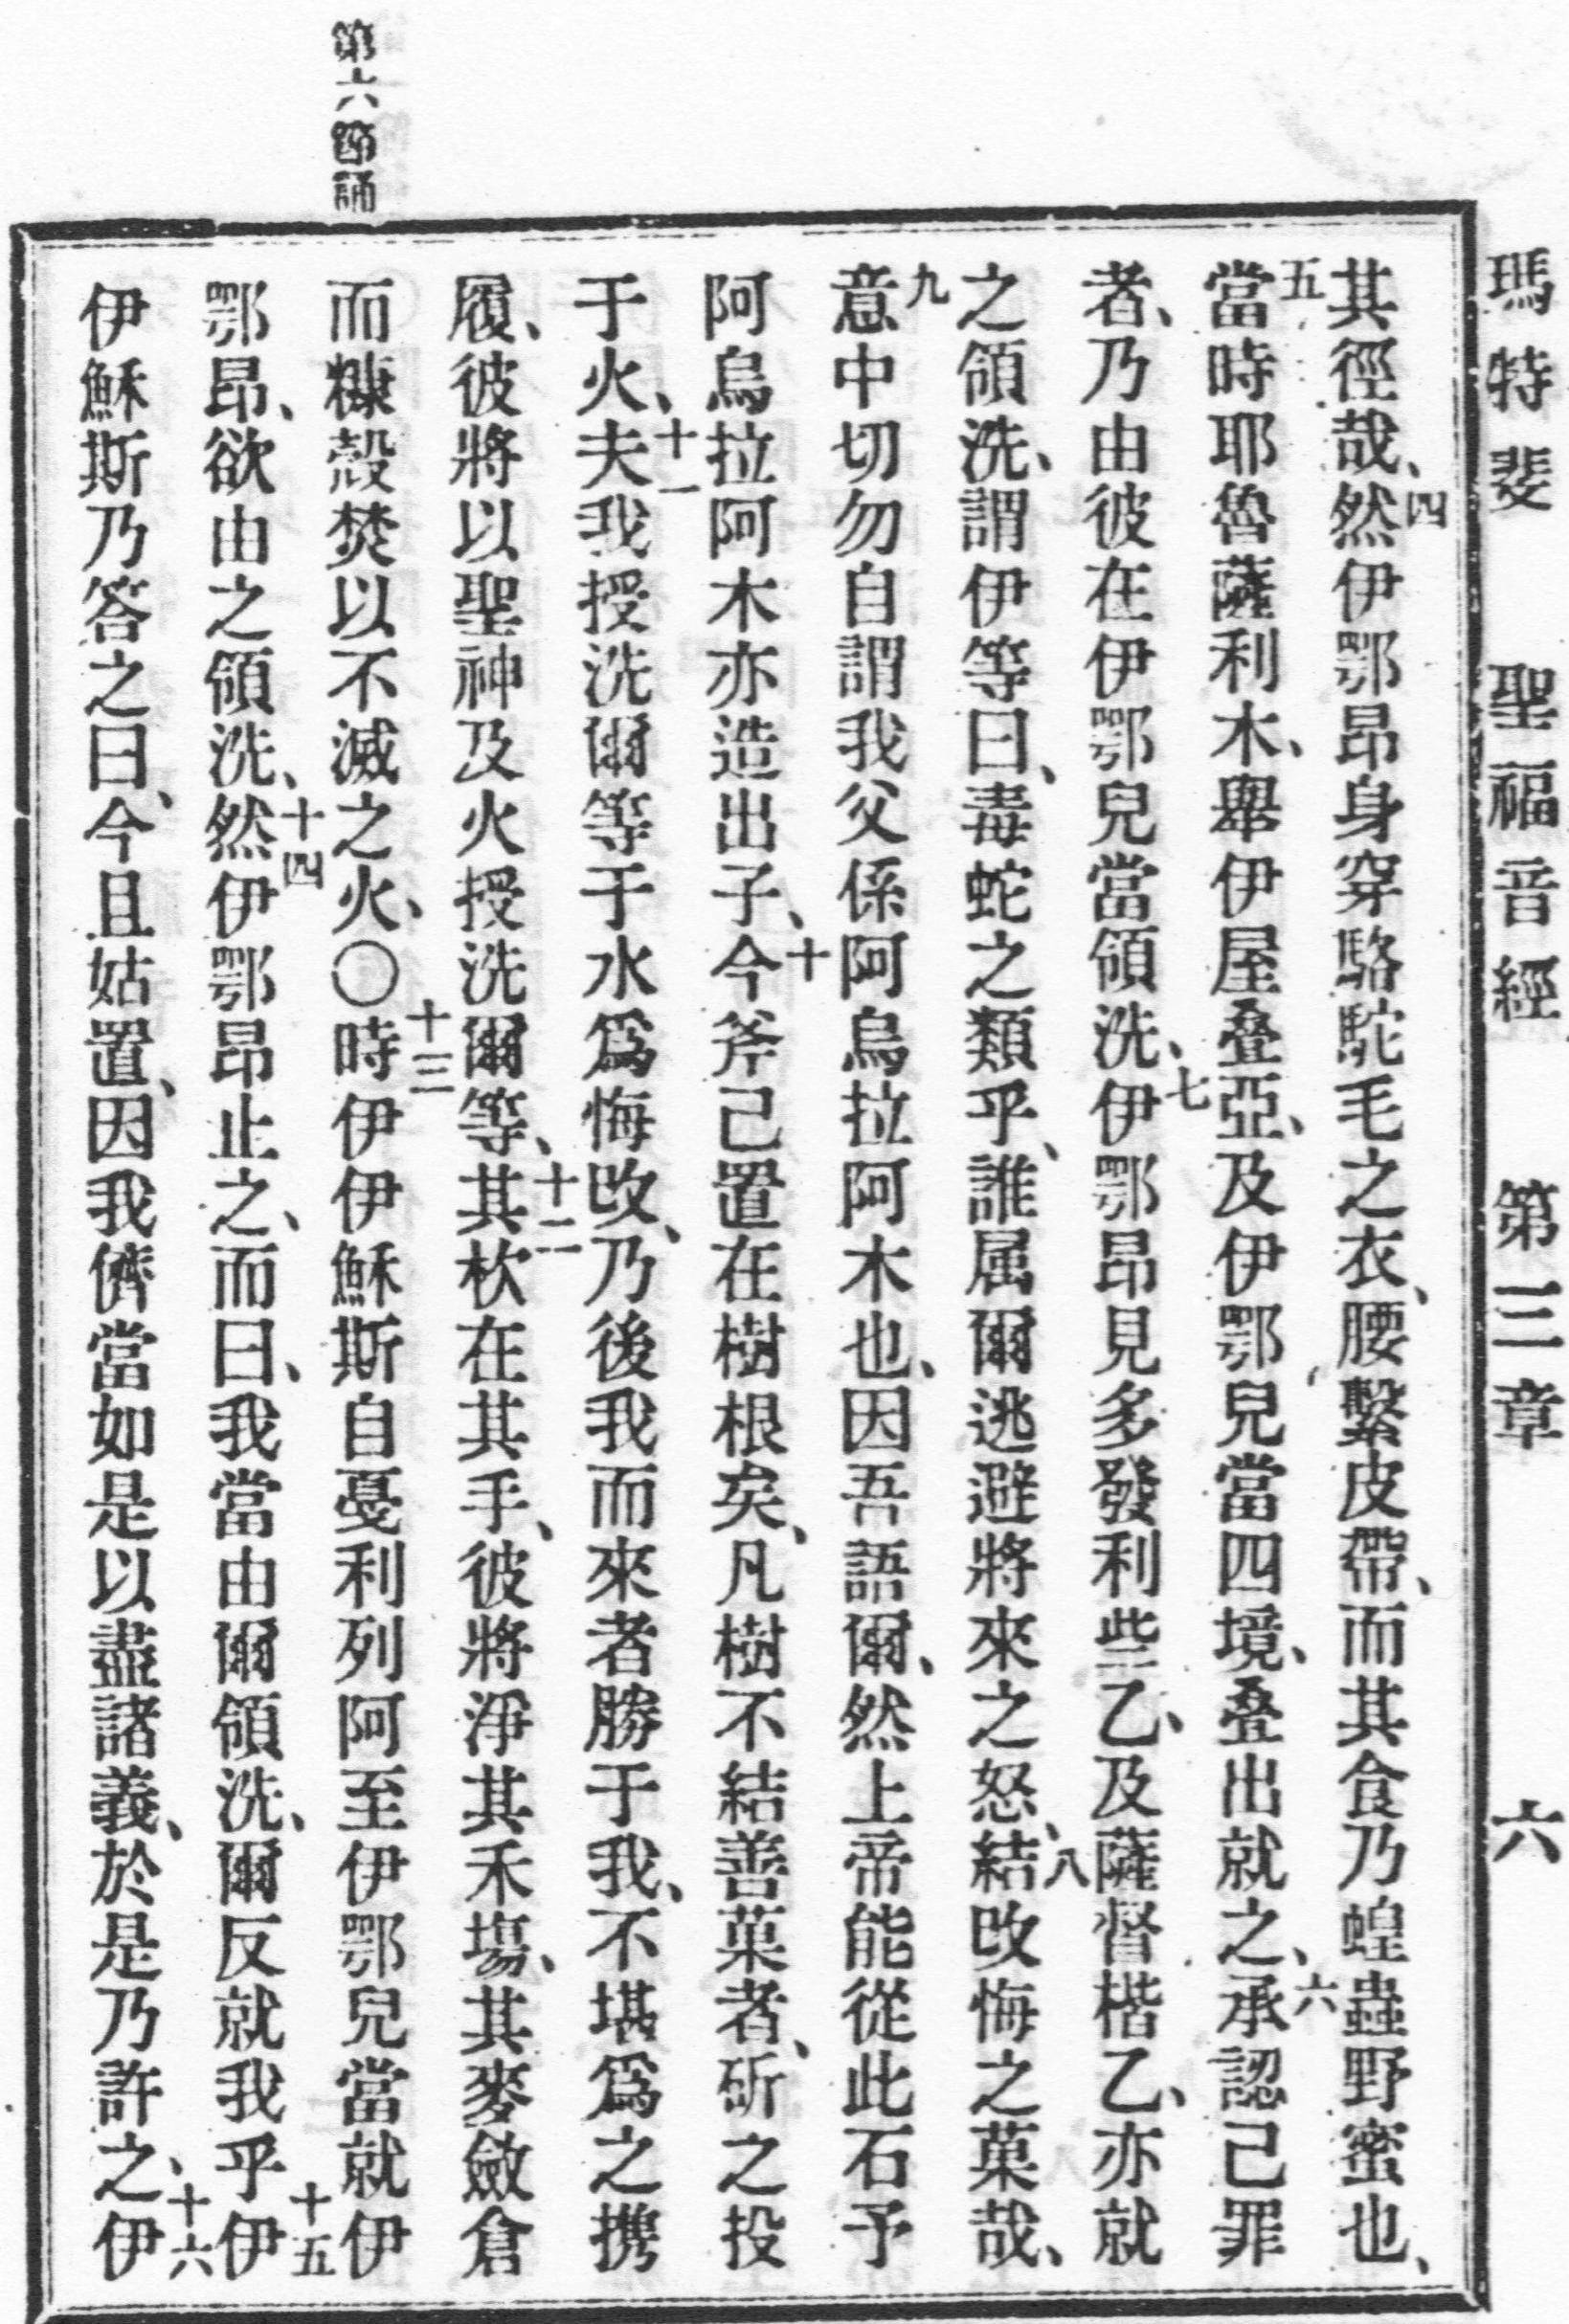 瑪特斐 聖福音經 第三章 六
其徑哉、四然伊鄂昂身穿駱駝毛之衣、腰繫皮帶、而其食乃蝗蟲野蜜也、
五當時耶魯薩利木、舉伊屋叠亞、及伊鄂兒當四境、叠出就之、六承認己罪
者、乃由彼在伊鄂兒當領洗、七伊鄂昂見多發利些乙、及薩督楷乙、亦就
之領洗、謂伊等曰、毒蛇之類乎、誰属爾逃避將來之怒、八結改悔之菓哉、
九意中切勿自謂我父係阿烏拉阿木也、因吾語爾、然上帝能從此石予
阿烏拉阿木亦造出子、十今斧己置在樹根矣、凡樹不結善菓者、斫之投
于火、十一夫我授洗爾等于水爲悔改、乃後我而來者勝于我、不堪爲之携
履、彼將以聖神及火授洗爾等、十二其杴在其手、彼將淨其禾塲、其麥斂倉
而糠殼焚以不滅之火、○十三時伊伊穌斯自戞利列阿至伊鄂兒當就伊
鄂昂、欲由之領洗、十四然伊鄂昂止之、而曰、我當由爾領洗、爾反就我乎十五伊
伊穌斯乃答之曰、今且姑置、因我儕當如是以盡諸義、於是乃許之、十六伊
第六節誦